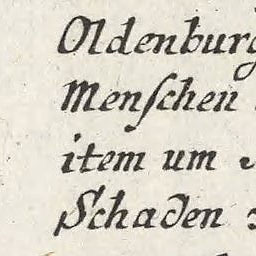 Oldenburg
Menſchen
item um
Schaden